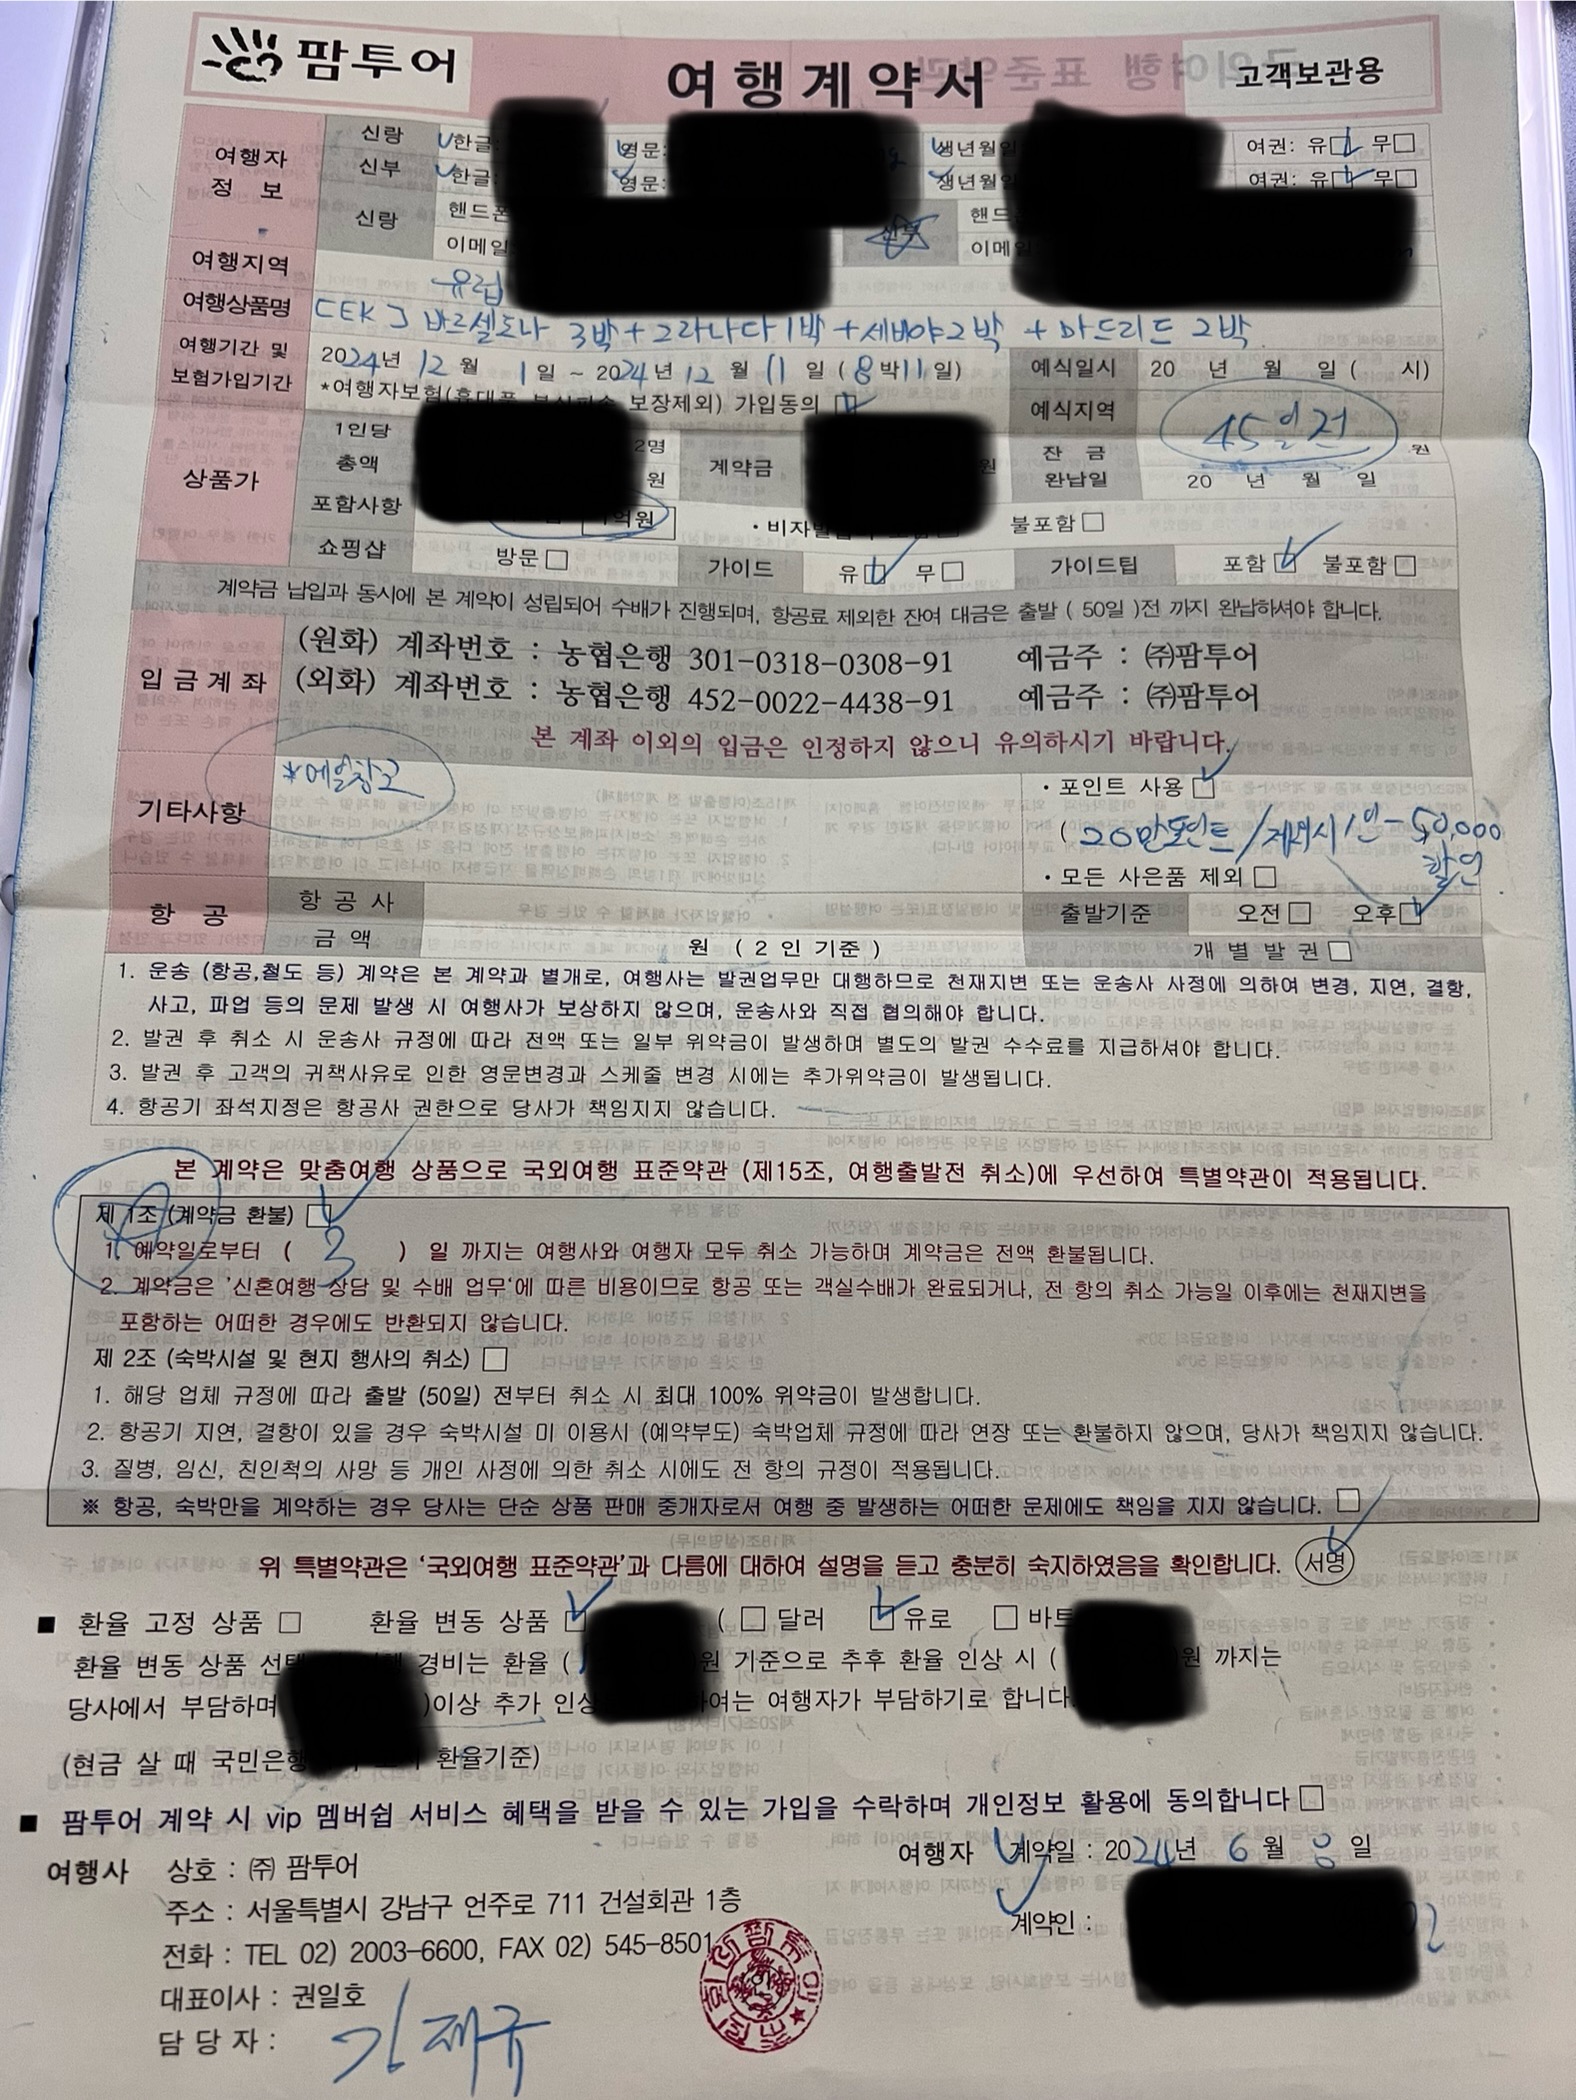 팜투어 여행계약서 고객보관용
여행자 정 보 신랑 한글: 영문: 생년월일 여권: 유□ 무□
신부 한글: 영문: 생년월일 여권: 유□ 무□
신랑 핸드폰 신부 핸드
이메일 이메일
여행지역 유럽
여행상품명 CEK J 바르셀로나 3박+그라나다1박+세비야2박 +마드리드 2박
여행기간 및 보험가입기간 2024년 12월 1일 ~ 2024년 12월 11일 (8박11일) 예식일시 20 년 월 일 ( 시)
*여행자보험(휴대폰 분실파손 보장제외) 가입동의 예식지역
상품가 1인당 2명 계약금 원 잔 금 45일전 원
총액 원 완납일 20 년 월 일
포함사항 억원 ·비자발 불포함□
쇼핑샵 방문□ 가이드 유□ 무□ 가이드팁 포함□ 불포함□
계약금 납입과 동시에 본 계약이 성립되어 수배가 진행되며, 항공료 제외한 잔여 대금은 출발 ( 50일 )전 까지 완납하셔야 합니다.
입금계좌 (원화) 계좌번호 : 농협은행 301-0318-0308-91 예금주 : ㈜팜투어
(외화) 계좌번호 : 농협은행 452-0022-4438-91 예금주 : ㈜팜투어
본 계좌 이외의 입금은 인정하지 않으니 유의하시기 바랍니다.
기타사항 *메일참고 ·포인트 사용□
( 20만포인트/제외시 1인-50,000 할인
·모든 사은품 제외□
항 공 항 공 사 출발기준 오전□ 오후□
금 액 원 ( 2 인 기준 ) 개 별 발 권□
1. 운송 (항공,철도 등) 계약은 본 계약과 별개로, 여행사는 발권업무만 대행하므로 천재지변 또는 운송사 사정에 의하여 변경, 지연, 결항,
사고, 파업 등의 문제 발생 시 여행사가 보상하지 않으며, 운송사와 직접 협의해야 합니다.
2. 발권 후 취소 시 운송사 규정에 따라 전액 또는 일부 위약금이 발생하며 별도의 발권 수수료를 지급하셔야 합니다.
3. 발권 후 고객의 귀책사유로 인한 영문변경과 스케줄 변경 시에는 추가위약금이 발생됩니다.
4. 항공기 좌석지정은 항공사 권한으로 당사가 책임지지 않습니다.
본 계약은 맞춤여행 상품으로 국외여행 표준약관 (제15조, 여행출발전 취소)에 우선하여 특별약관이 적용됩니다.
제 1조 (계약금 환불) □
1. 예약일로부터 ( 3 ) 일 까지는 여행사와 여행자 모두 취소 가능하며 계약금은 전액 환불됩니다.
2. 계약금은 '신혼여행 상담 및 수배 업무'에 따른 비용이므로 항공 또는 객실수배가 완료되거나, 전 항의 취소 가능일 이후에는 천재지변을
포함하는 어떠한 경우에도 반환되지 않습니다.
제 2조 (숙박시설 및 현지 행사의 취소) □
1. 해당 업체 규정에 따라 출발 (50일) 전부터 취소 시 최대 100% 위약금이 발생합니다.
2. 항공기 지연, 결항이 있을 경우 숙박시설 미 이용시 (예약부도) 숙박업체 규정에 따라 연장 또는 환불하지 않으며, 당사가 책임지지 않습니다.
3. 질병, 임신, 친인척의 사망 등 개인 사정에 의한 취소 시에도 전 항의 규정이 적용됩니다.
※ 항공, 숙박만을 계약하는 경우 당사는 단순 상품 판매 중개자로서 여행 중 발생하는 어떠한 문제에도 책임을 지지 않습니다. □
위 특별약관은 '국외여행 표준약관'과 다름에 대하여 설명을 듣고 충분히 숙지하였음을 확인합니다. 서명
■ 환율 고정 상품 □ 환율 변동 상품 □ ( □ 달러 □ 유로 □ 바트
환율 변동 상품 선택 경비는 환율 ( 원 기준으로 추후 환율 인상 시 ( 원 까지는
당사에서 부담하며 )이상 추가 인상 하여는 여행자가 부담하기로 합니다.
(현금 살 때 국민은행 환율기준)
■ 팜투어 계약 시 vip 멤버쉽 서비스 혜택을 받을 수 있는 가입을 수락하며 개인정보 활용에 동의합니다 □
여행사 상호 : ㈜ 팜투어 여행자 계약일 : 2024년 6월 8일
주소 : 서울특별시 강남구 언주로 711 건설회관 1층
계약인 :
전화 : TEL 02) 2003-6600, FAX 02) 545-8501
대표이사 : 권일호
담 당 자 : 김재규